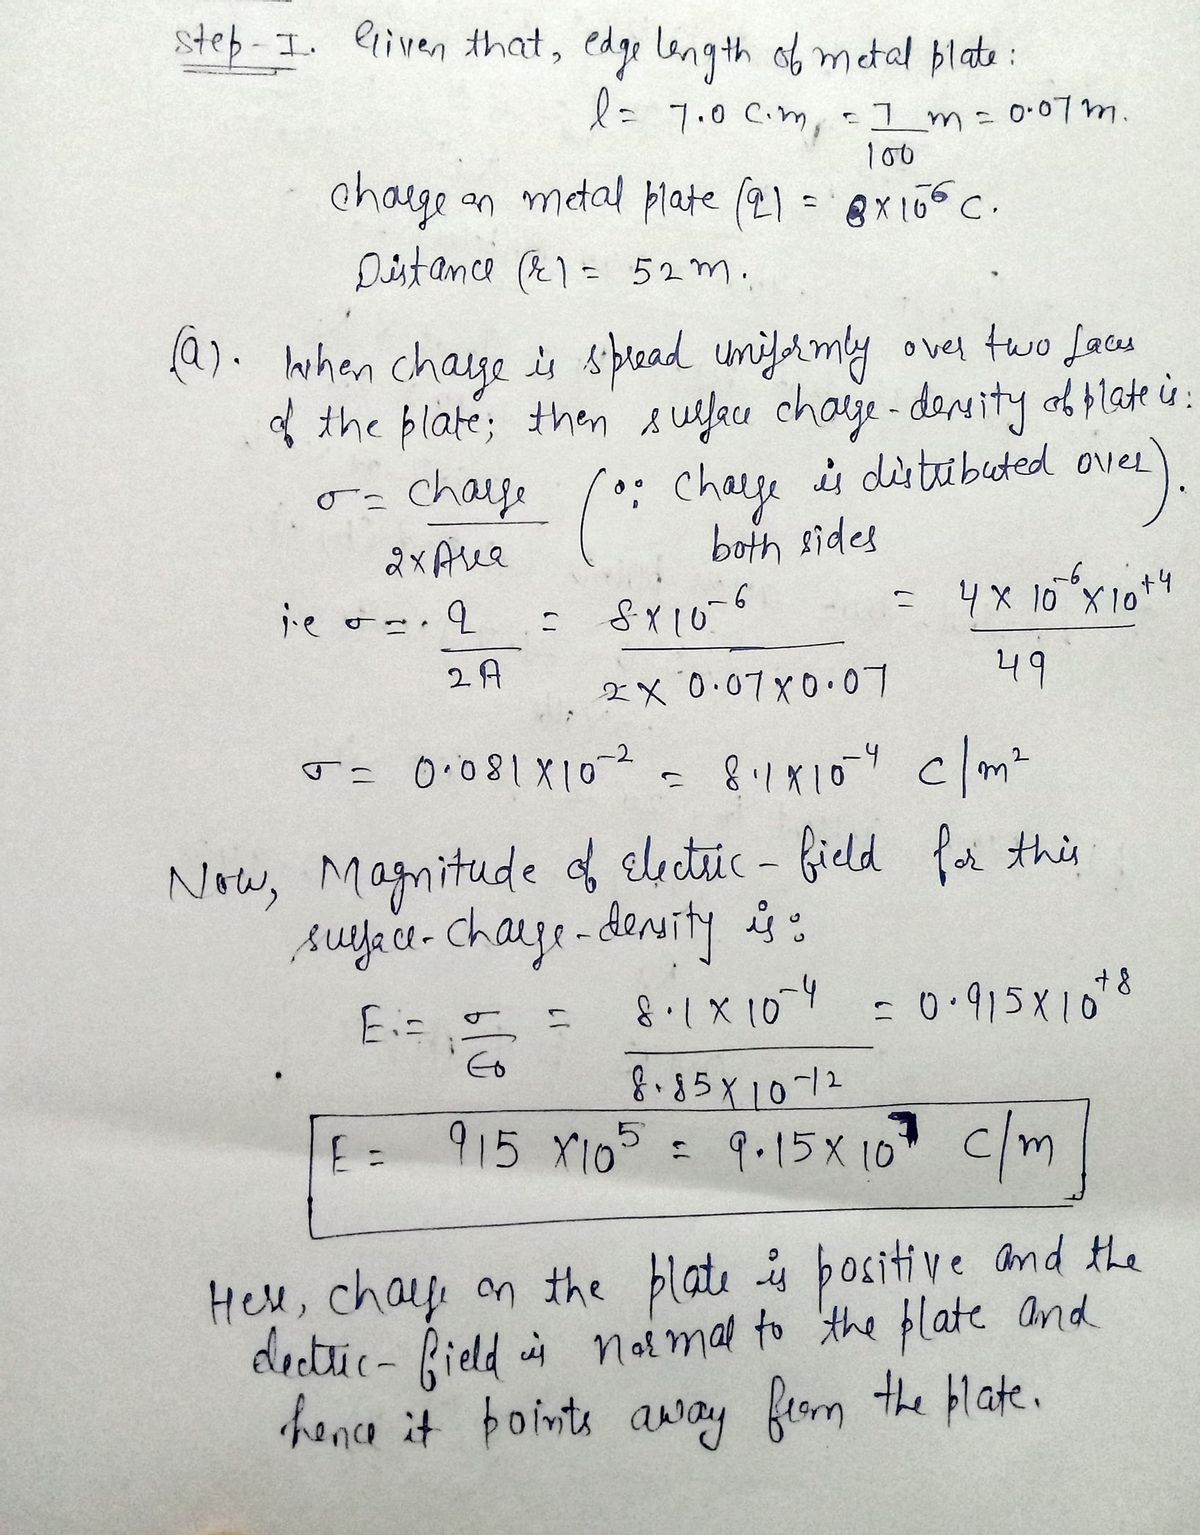 Step-I. Given that, edge length of metal plate:
l = 7.0 c.m, = 7/100 m = 0.07 m.
charge on metal plate (q) = 8×10^-6 C.
Distance (r) = 52 m.
(a). When charge is spread uniformly over two faces
of the plate; then surface charge-density of plate is:
σ = charge / 2×Area (∵ charge is distributed over both sides).
i.e σ = q / 2A = 8×10^-6 / 2×0.07×0.07 = 4×10^-6×10^+4 / 49
σ = 0.081×10^-2 = 8.1×10^-4 C/m²
Now, Magnitude of electric-field for this
surface-charge-density is:
E = σ / ε0 = 8.1×10^-4 / 8.85×10^-12 = 0.915×10^+8
E = 915 ×10^5 = 9.15×10^7 C/m
Here, charge on the plate is positive and the
electric-field is normal to the plate and
hence it points away from the plate.